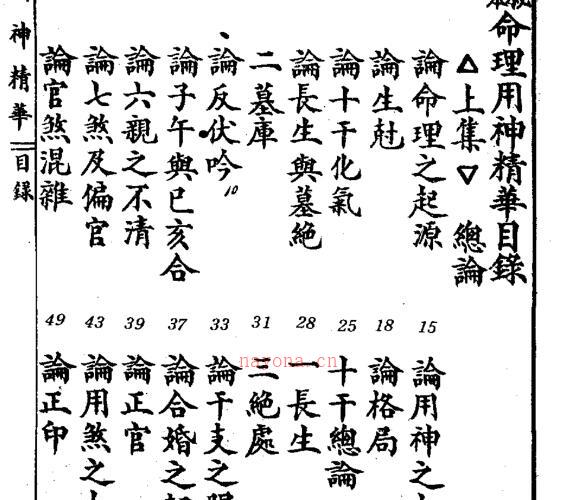 命理用神精華目錄
△上集▽ 總論
論命理之起源 15
論用神之
論生尅 18
論格局
論十干化氣 25
十干總論
論長生與墓絕 28
長生
二墓庫 31
二絕處
論反伏吟 33
論干支之
論子午與巳亥合 37
論合婚之
論六親之不清 39
論正官
論七煞及偏官 43
論用煞之
論官煞混雜 49
論正印
神精華 目錄
nayona.cn